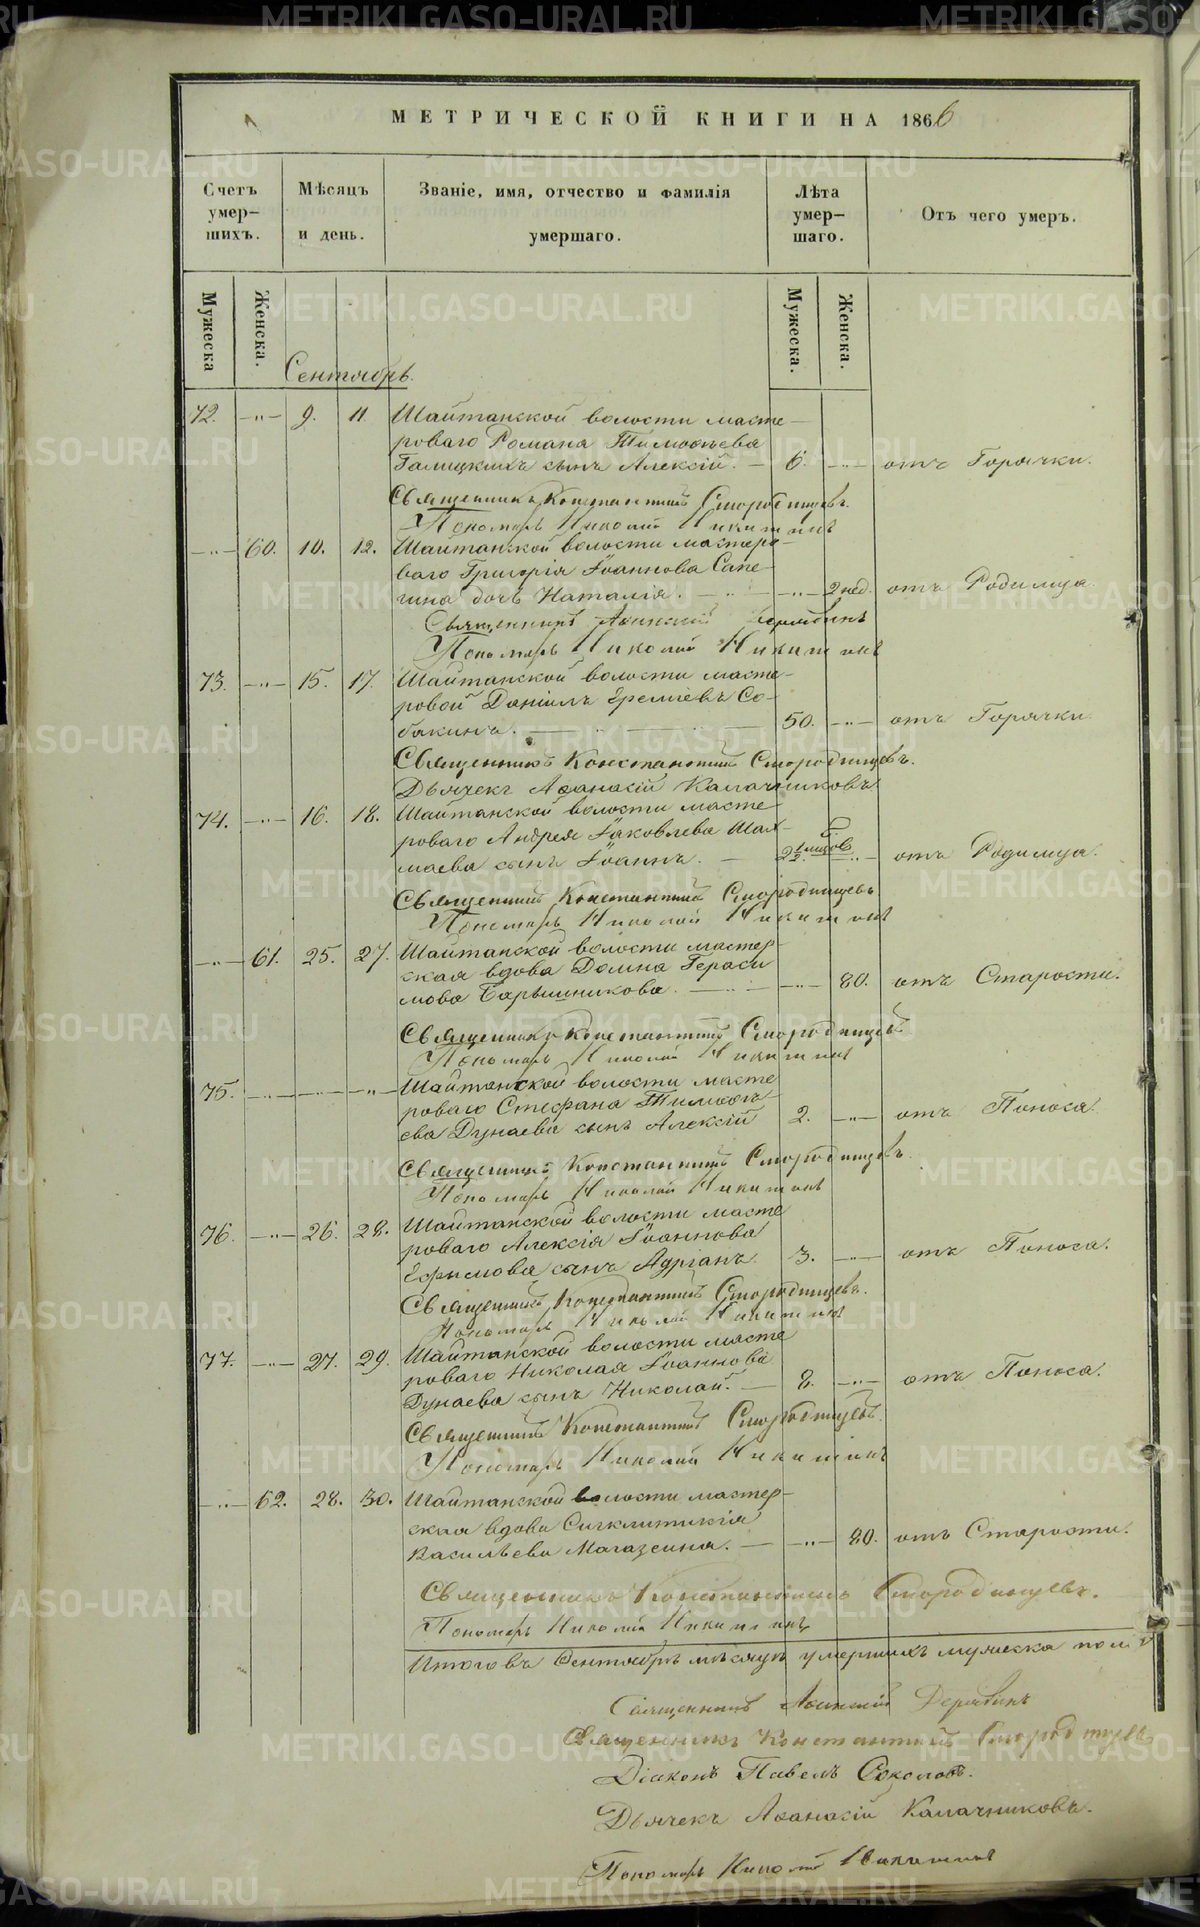 МЕТРИЧЕСКОЙ КНИГИ НА 1866
Счетъ умер-шихъ.
Мѣсяцъ и день.
Званіе, имя, отчество и фамилія умершаго.
Лѣта умер-шаго.
Отъ чего умеръ.
Мужеска
Женска.
Мужеска.
Женска.
Сентябрь.
72. —"— 9. 11. Шайтанской волости масте-
роваго Романа Тимоѳѣева
Галицкихъ сынъ Алексій. — 6. —"— отъ Горячки.
Священникъ Константинъ Смородинцевъ.
Пономарь Николай Никитинъ
—"— 60. 10. 12. Шайтанской волости мастеро-
ваго Григорія Іоаннова Сапе-
гина дочь Наталія. —"— 2 нед. отъ Родимца.
Священникъ Дерябинъ
Пономарь Николай Никитинъ
73. —"— 15. 17. Шайтанской волости масте-
ровой Даніилъ Ереміевъ Со-
бакинъ. — 50. —"— отъ Горячки.
Священникъ Константинъ Смородинцевъ.
Дьячекъ Аѳанасій Калачниковъ
74. —"— 16. 18. Шайтанской волости масте-
роваго Андрея Іаковлева Шал-
маева сынъ Іоаннъ. — —"— отъ Родимца.
Священникъ Константинъ Смородинцевъ
Пономарь Николай Никитинъ
—"— 61. 25. 27. Шайтанской волости мастер-
ская вдова Домна Гераси
мова Барышникова. —"— 80. отъ Старости.
Священникъ Константинъ Смородинцевъ
Пономарь Николай Никитинъ
75. —"— —"— —"— Шайтанской волости масте
роваго Стефана Тимоѳѣ-
ева Дунаева сынъ Алексій 2. —"— отъ Поноса.
Священникъ Константинъ Смородинцевъ.
Пономарь Николай Никитинъ
76. —"— 26. 28. Шайтанской волости масте
роваго Алексія Іоаннова
Ефимова сынъ Адріанъ. 3. —"— отъ Поноса.
Священникъ Константинъ Смородинцевъ.
Пономарь Николай Никитинъ
77. —"— 27. 29. Шайтанской волости масте
роваго Николая Іоаннова
Дунаева сынъ Николай. — 2. —"— отъ Поноса.
Священникъ Константинъ Смородинцевъ.
Пономарь Николай Никитинъ
—"— 62. 28. 30. Шайтанской волости мастер-
ская вдова Сигклитикія
Васильева Магазеина. —"— 80. отъ Старости.
Священникъ Константинъ Смородинцевъ.
Пономарь Николай Никитинъ
Итого въ Сентябрѣ мѣсяцѣ умершихъ мужеска пола
Священникъ Дерябинъ
Священникъ Константинъ Смородинцевъ
Діаконъ Павелъ Соколовъ.
Дьячекъ Аѳанасій Калачниковъ.
Пономарь Николай Никитинъ
METRIKI.GASO-URAL.RU